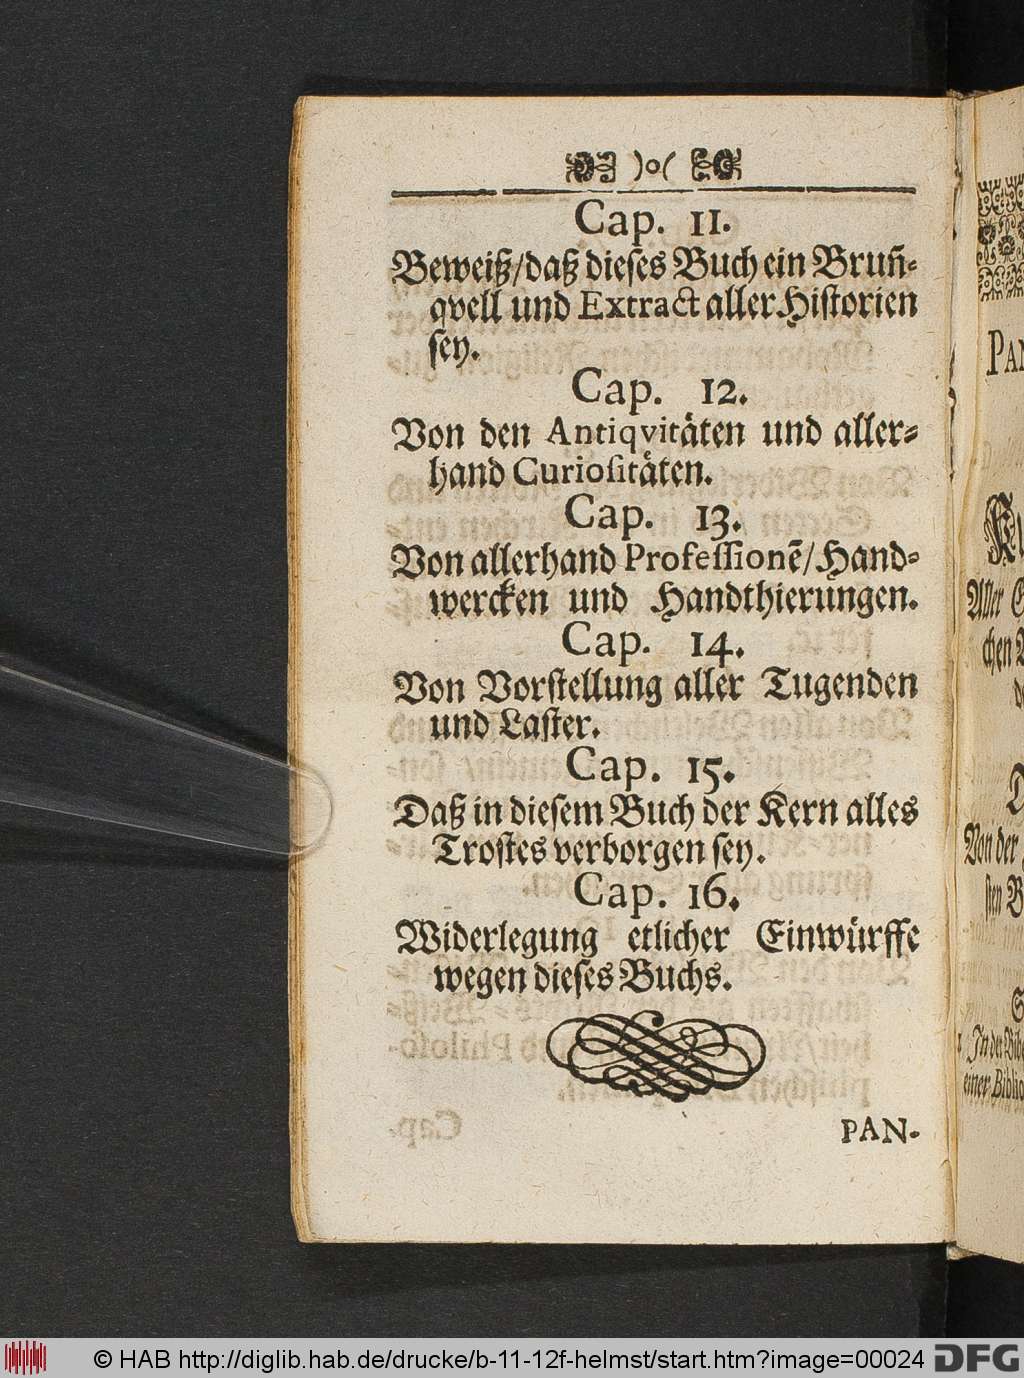 )o(
Cap. 11.
Beweiß/daß dieses Buch ein Brun̄-
qvell und Extract aller Historien
sey.
Cap. 12.
Von den Antiqvitäten und aller-
hand Curiositäten.
Cap. 13.
Von allerhand Professionē/Hand-
wercken und Handthierungen.
Cap. 14.
Von Vorstellung aller Tugenden
und Laster.
Cap. 15.
Daß in diesem Buch der Kern alles
Trostes verborgen sey.
Cap. 16.
Widerlegung etlicher Einwürffe
wegen dieses Buchs.
PAN-
Aller
Von der
In der
einer
© HAB http://diglib.hab.de/drucke/b-11-12f-helmst/start.htm?image=00024
DFG